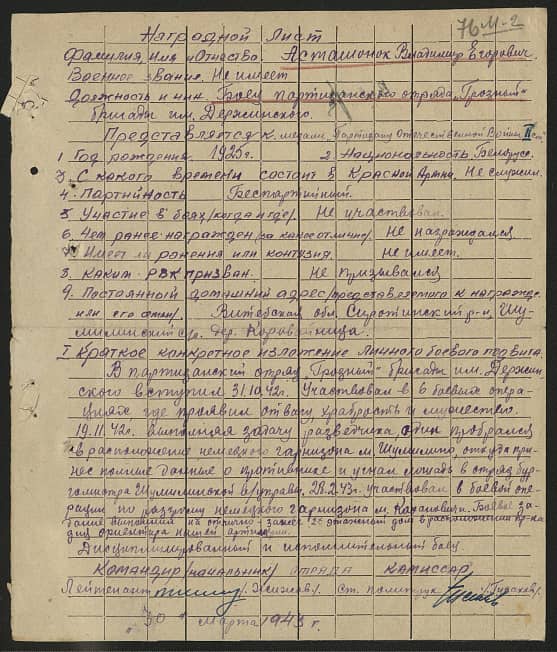 76 М-2
Наградной Лист
Фамилия, имя и Отчество. Асташонок Владимир Егорович.
Военное звание. Не имеет
Должность и Боец партизанского отряда „Грозный"
бригады им. Держинского.
Представляется к медали „Партизану Отечественной Войны II ст"
1 Год рождения 1925г. 2. Национальность Белорусс.
3. С какого времени состоит в Красной Армии. Не служил.
4. Партийность Беспартийный.
5. Участие в боях /когда и где/. Не участвовал.
6. Чем ранее награжден /за какое отличие/ Не награждался
7. Имеет ли ранения или контузия. Не имеет.
8. каким РВК призван. Не призывался
9. Постоянный домашний адрес /представляемого к награжде.
или его семьи/. Витебская обл. Сиротинский р-н, Шу-
милинский с/с. дер.
I Краткое конкретное изложение личного боевого подвига.
В партизанский отряд „Грозный" бригады им. Держин
ского вступил 31.10.42г. Участвовал в 6 боевых опера-
циях где проявил отвагу, храбрость и мужество.
19.11.42г. выполняя задачу разведчика, один пробрался
в расположение немецкого гарнизона м. Шумилино, откуда при-
нес полные данные о противнике и угнал лошадь в отряд бур-
гомистра Шумилинской в/управы. 28.2.43г. участвовал в боевой опе-
рации по разгрому немецкого гарнизона м. Боевое за-
дание выполнил на отлично - зажег 2х этажный дом в расположении пр-ка
для ориентира нашей артиллерии.
Дисциплинированный и исполнительный боец
Командир /начальник/ отряда Комиссар,
Лейтенант Ст. политрук
„30" Марта 1943 г.